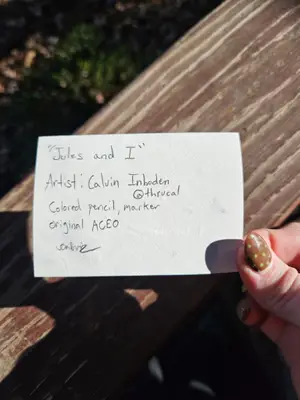 "Jules and I"
Artist: Calvin Inboden
@thrucal
Colored pencil, marker
original ACEO